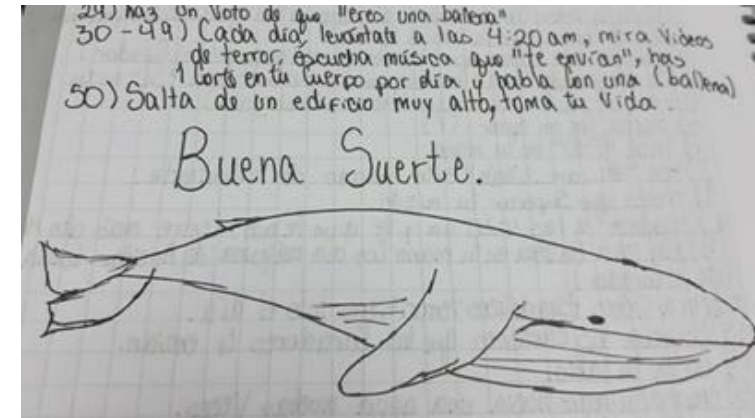 29) haz un voto de que "eres una ballena"
30-49) Cada día levantate a las 4:20 am, mira Videos
de terror, escucha música que "te envían", has
1 Corte en tu cuerpo por día y habla con una (ballena)
50) Salta de un edificio muy alto, toma tu vida.
Buena Suerte.